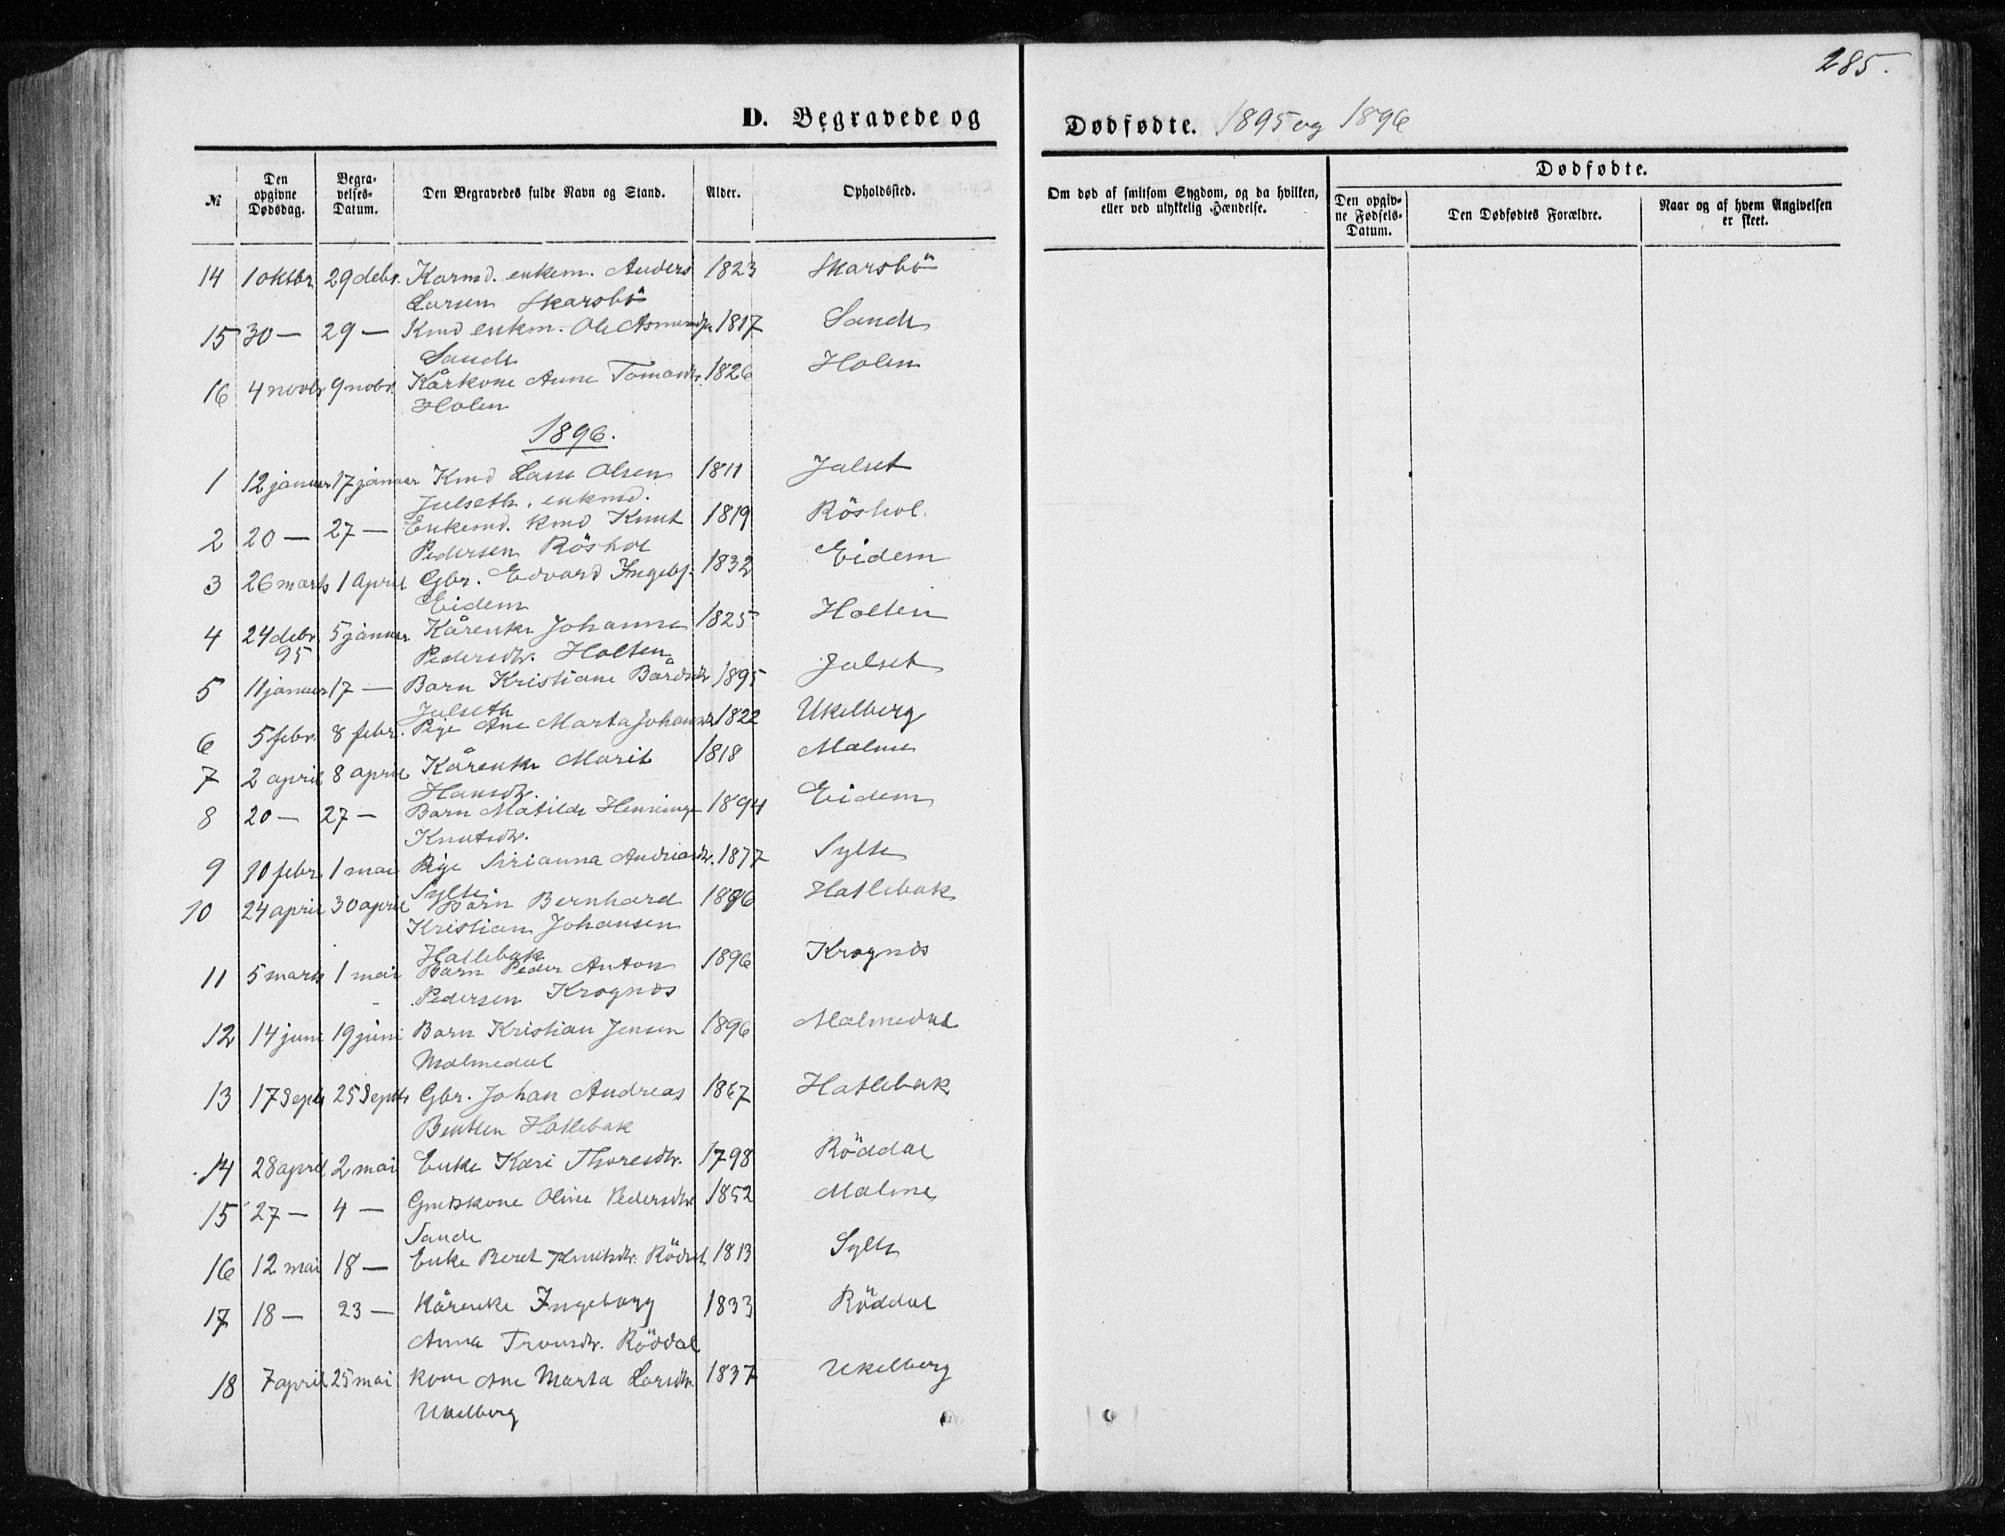 285.
D. Begravede og Dødfødte. 1895 og 1896
№ Den opgivne Dødsdag. Begravelses-Datum. Den Begravedes fulde Navn og Stand. Alder. Opholdssted. Om død af smitsom Sygdom, og da hvilken, eller ved ulykkelig Hændelse. Dødfødte. Den opgivne Fødsels-Datum. Den Dødfødtes Forældre. Naar og af hvem Angivelsen er skeet.
14 1 oktbr 29 debr. Karmd. enkem. Anders 1823 Skarsbö
Larsen Skarsbö
15 30 — 29 — Kmd enkm. Ole Asmunds. 1817 Sande
Sande
16 4 novbr 9 nobr. Kårkone Anne Tomasdtr. 1826 Holen
Holen
1896.
1 12 januar 17 januar Kmd Lasse Olsen 1811 Julset
Julseth. enkmd.
2 20 — 27 — Enkemd. kmd Knut 1819 Röshol.
Pedersen Röshol
3 26 marts 1 April Gbr. Edvard Ingebr. 1832 Eidem
Eidem
4 24 debr. 5 januar Kårenke Johanne 1825 Holten
95 Pedersdtr. Holten
5 11 januar 17 — Barn Kristiane Bårdsdtr 1895 Julset
Julseth
6 5 febr. 8 febr. Pige Ane Marta Johansdtr 1822 Ukelberg
7 2 april 8 april Kårenke Marit 1818 Malme
Hansdtr.
8 20 — 27 — Barn Matilde Henninge 1894 Eidem
Knutsdtr.
9 10 febr. 1 mai Pige Sirianna Andreasdtr. 1877 Sylte
Sylte
10 24 april 30 april Barn Bernhard 1896 Hatlebak
Kristian Johansen
Hatlebak
11 5 marts 1 mai Barn Peder Anton 1896 Krognæs
Pedersen Krognæs
12 14 juni 19 juni Barn Kristian Jensen 1896 Malmedal
Malmedal
13 17 Septr 25 Septbr Gbr. Johan Andreas 1867 Hatlebak
Bentsen Hatlebak
14 28 april 2 mai Enke Kari Thoresdtr. 1798 Röddal
15 27 — 4 — Gmdskone Oline Pedersdtr 1852 Malme
Sande
16 12 mai 18 — Enke Beret Knutsdtr. Rödal 1813 Sylte
17 18 — 23 — Kårenke Ingeborg 1833 Röddal
Anna Tronsdtr. Röddal
18 7 april 25 mai Kone Ane Marta Larsdtr. 1837 Ukelberg
Ukelberg